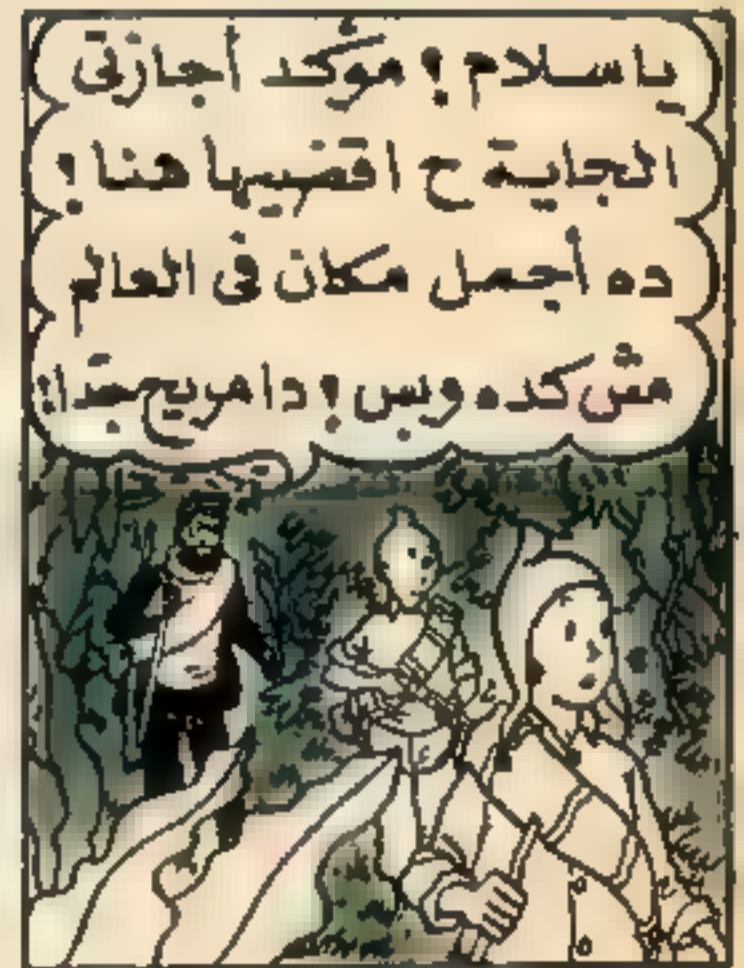 ياسلام! مؤكد أجازتى
الجاية ح اقضيها هنا!
ده أجمل مكان فى العالم
مش كده وبس! دا مريح جدا!